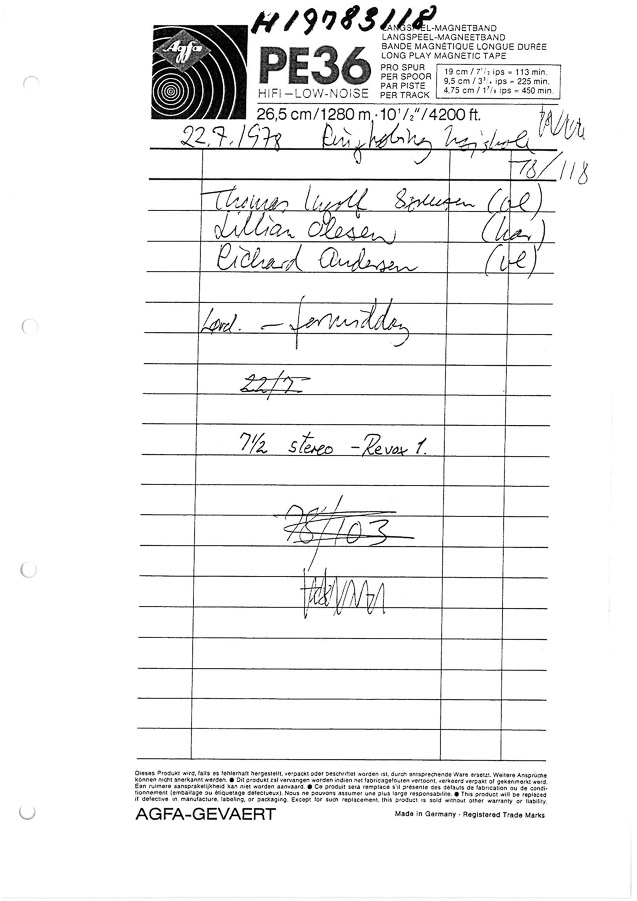 H19783118
Agfa
PE36
HIFI–LOW–NOISE
LANGSPIEL-MAGNETBAND
LANGSPEEL-MAGNEETBAND
BANDE MAGNÉTIQUE LONGUE DURÉE
LONG PLAY MAGNETIC TAPE
PRO SPUR
PER SPOOR
PAR PISTE
PER TRACK
19 cm / 7 1/2 ips = 113 min.
9,5 cm / 3 3/4 ips = 225 min.
4,75 cm / 1 7/8 ips = 450 min.
26,5 cm/1280 m · 10 1/2"/4200 ft.
22.7.1978 Ringkøbing Højskole
78/118
Thomas Sørensen (vl)
Lillian Olesen (har)
Richard Andersen (vl)
Lørd. – formiddag
22/7
7 1/2 stereo – Revox 1.
78/103
Dieses Produkt wird, falls es fehlerhaft hergestellt, verpackt oder beschriftet worden ist, durch entsprechende Ware ersetzt. Weitere Ansprüche
können nicht anerkannt werden. ● Dit produkt zal vervangen worden indien het fabricagefouten vertoont, verkeerd verpakt of gekenmerkt werd.
Een ruimere aansprakelijkheid kan niet worden aanvaard. ● Ce produit sera remplacé s'il présente des défauts de fabrication ou de condi-
tionnement (emballage ou étiquetage défectueux). Nous ne pouvons assumer une plus large responsabilité. ● This product will be replaced
if defective in manufacture, labeling, or packaging. Except for such replacement, this product is sold without other warranty or liability.
AGFA-GEVAERT
Made in Germany · Registered Trade Marks